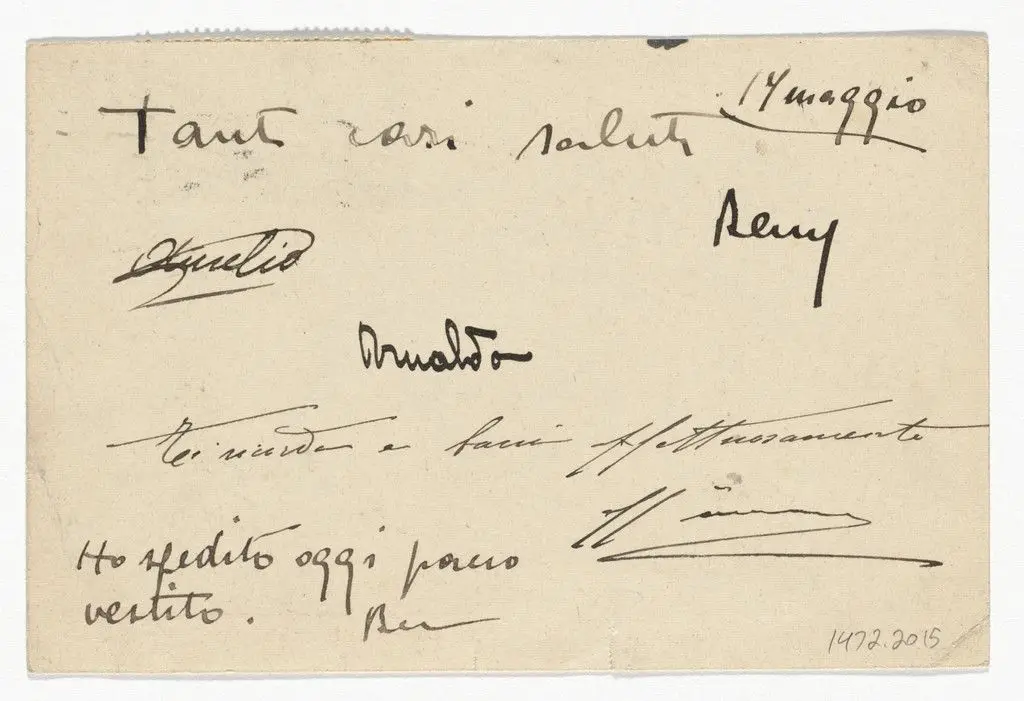 17 maggio
Tanti cari saluti
Remy
Aurelio
Arnaldo
Ti ricorda e baci affettuosamente
Ho spedito oggi pacco
vestito.
1472.2015